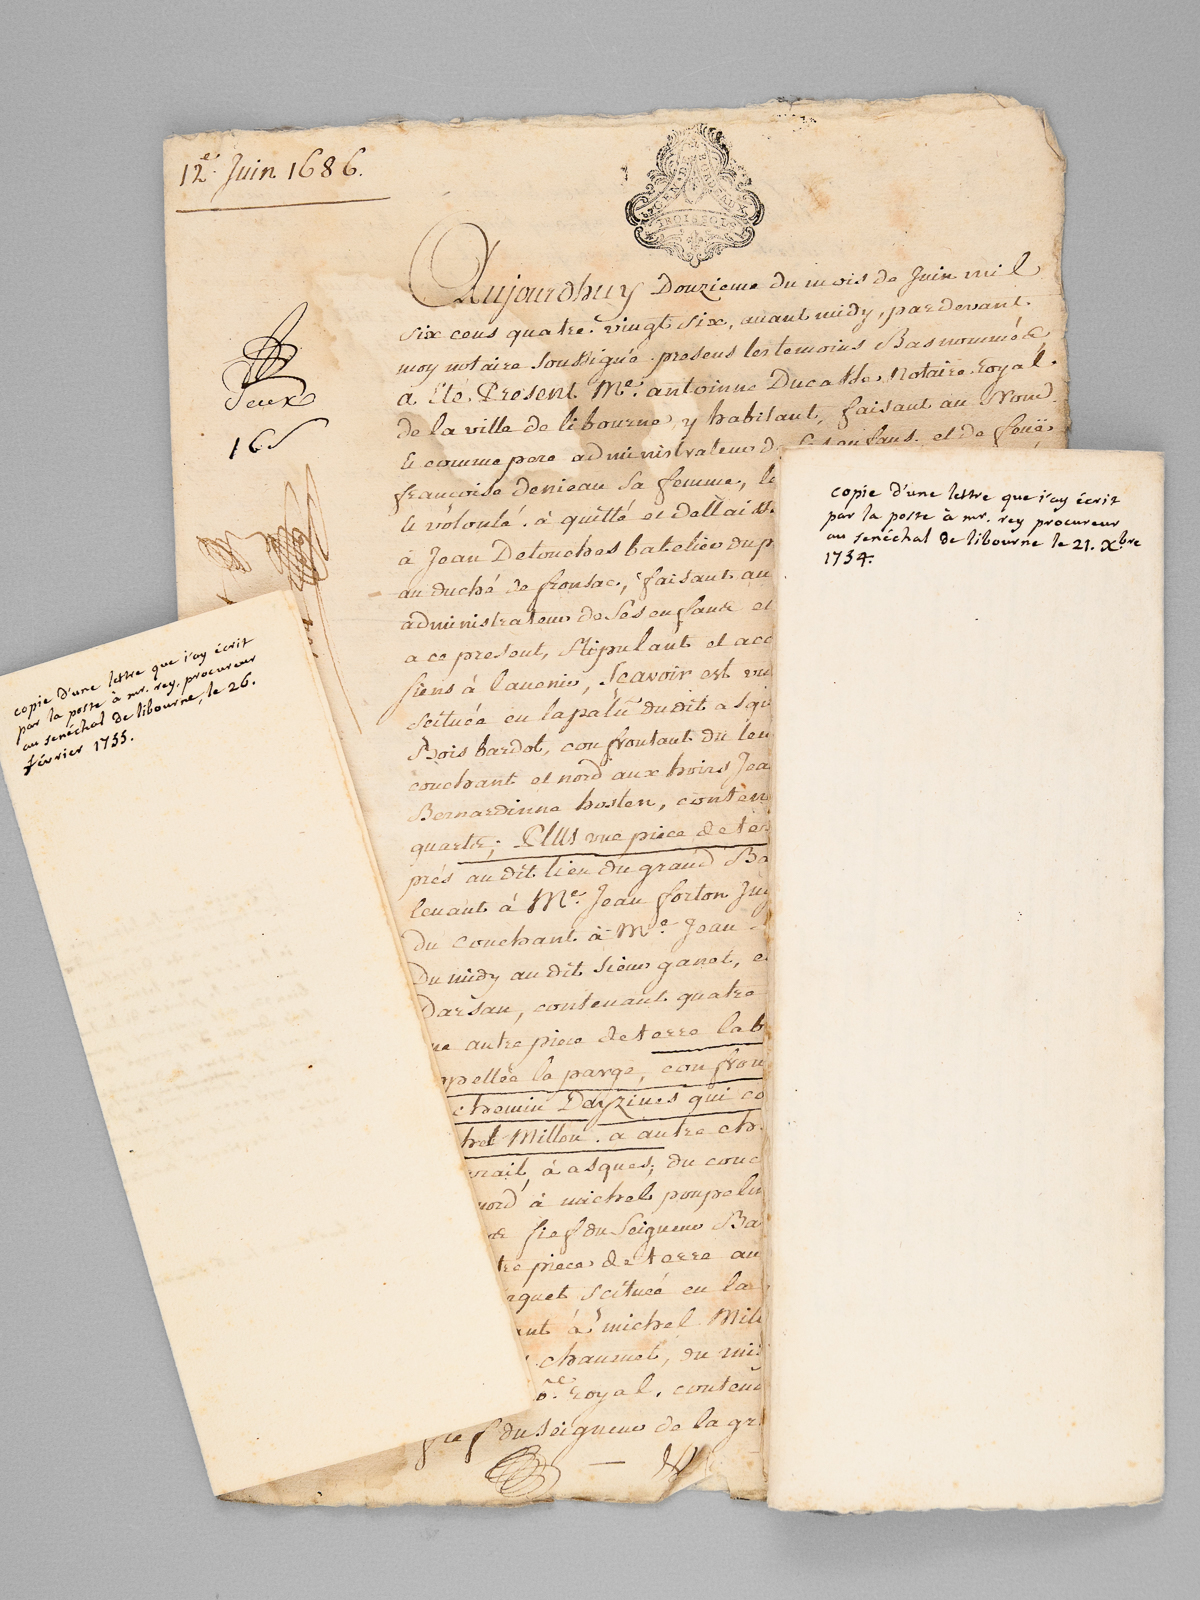 12e. Juin 1686.
GEN. DE BORDEAUX
TROIS SOLS
Aujourdhuy Douzieme du mois de Juin mil
six cens quatre. vingt six, auant midy, pardevant.
moy notaire soussigné. presens les temoins Bas nommés,
a Eté. Present Me. antoinne Ducasse, Notaire Royal.
de la ville de libourne, y habitant, faisant au Nom.
& comme pere administrateur de Ses enfans. et de feüe
francoise denieau sa femme, le
& volonté. à quitté et dellaissé
à Jean Detouches batelier du p
au duché de fronsac, faisant au
administrateur de Ses enfans et
a ce present, Stipulant et acc
siens à lauenir, Scavoir est un
scituée en la palu du dit asqu
Bois bardot, confrontant du leu
couchant et nord aux hoirs Jea
Bernardinne hosten, conten
quarte; Plus une piece de ter
prés au dit lieu du grand Ba
leuant à Me. Jean forton Jug
du couchant à Me. Jean
Du midy au dit sieur ganet, e
Darsau, contenant quatre
ne autre piece de terre lab
pellée la parge, confron
chemin Dayzines qui co
hel Millon. a autre ch
vrail, à asques; du couc
nord à michel poupelin
fief du Seigneur Ba
tre piece de terre au
rquet scituée en la
ant à michel Mil
chaumet, du mi
Royal, conten
fief du seigneur de la gr
copie d'une lettre que j'ay écrit
par la poste à mr. rey procureur
au senéchal de libourne le 21. Xbre
1754.
copie d'une lettre que j'ay écrit
par la poste à mr. rey, procureur
au senéchal de libourne, le 26.
février 1755.